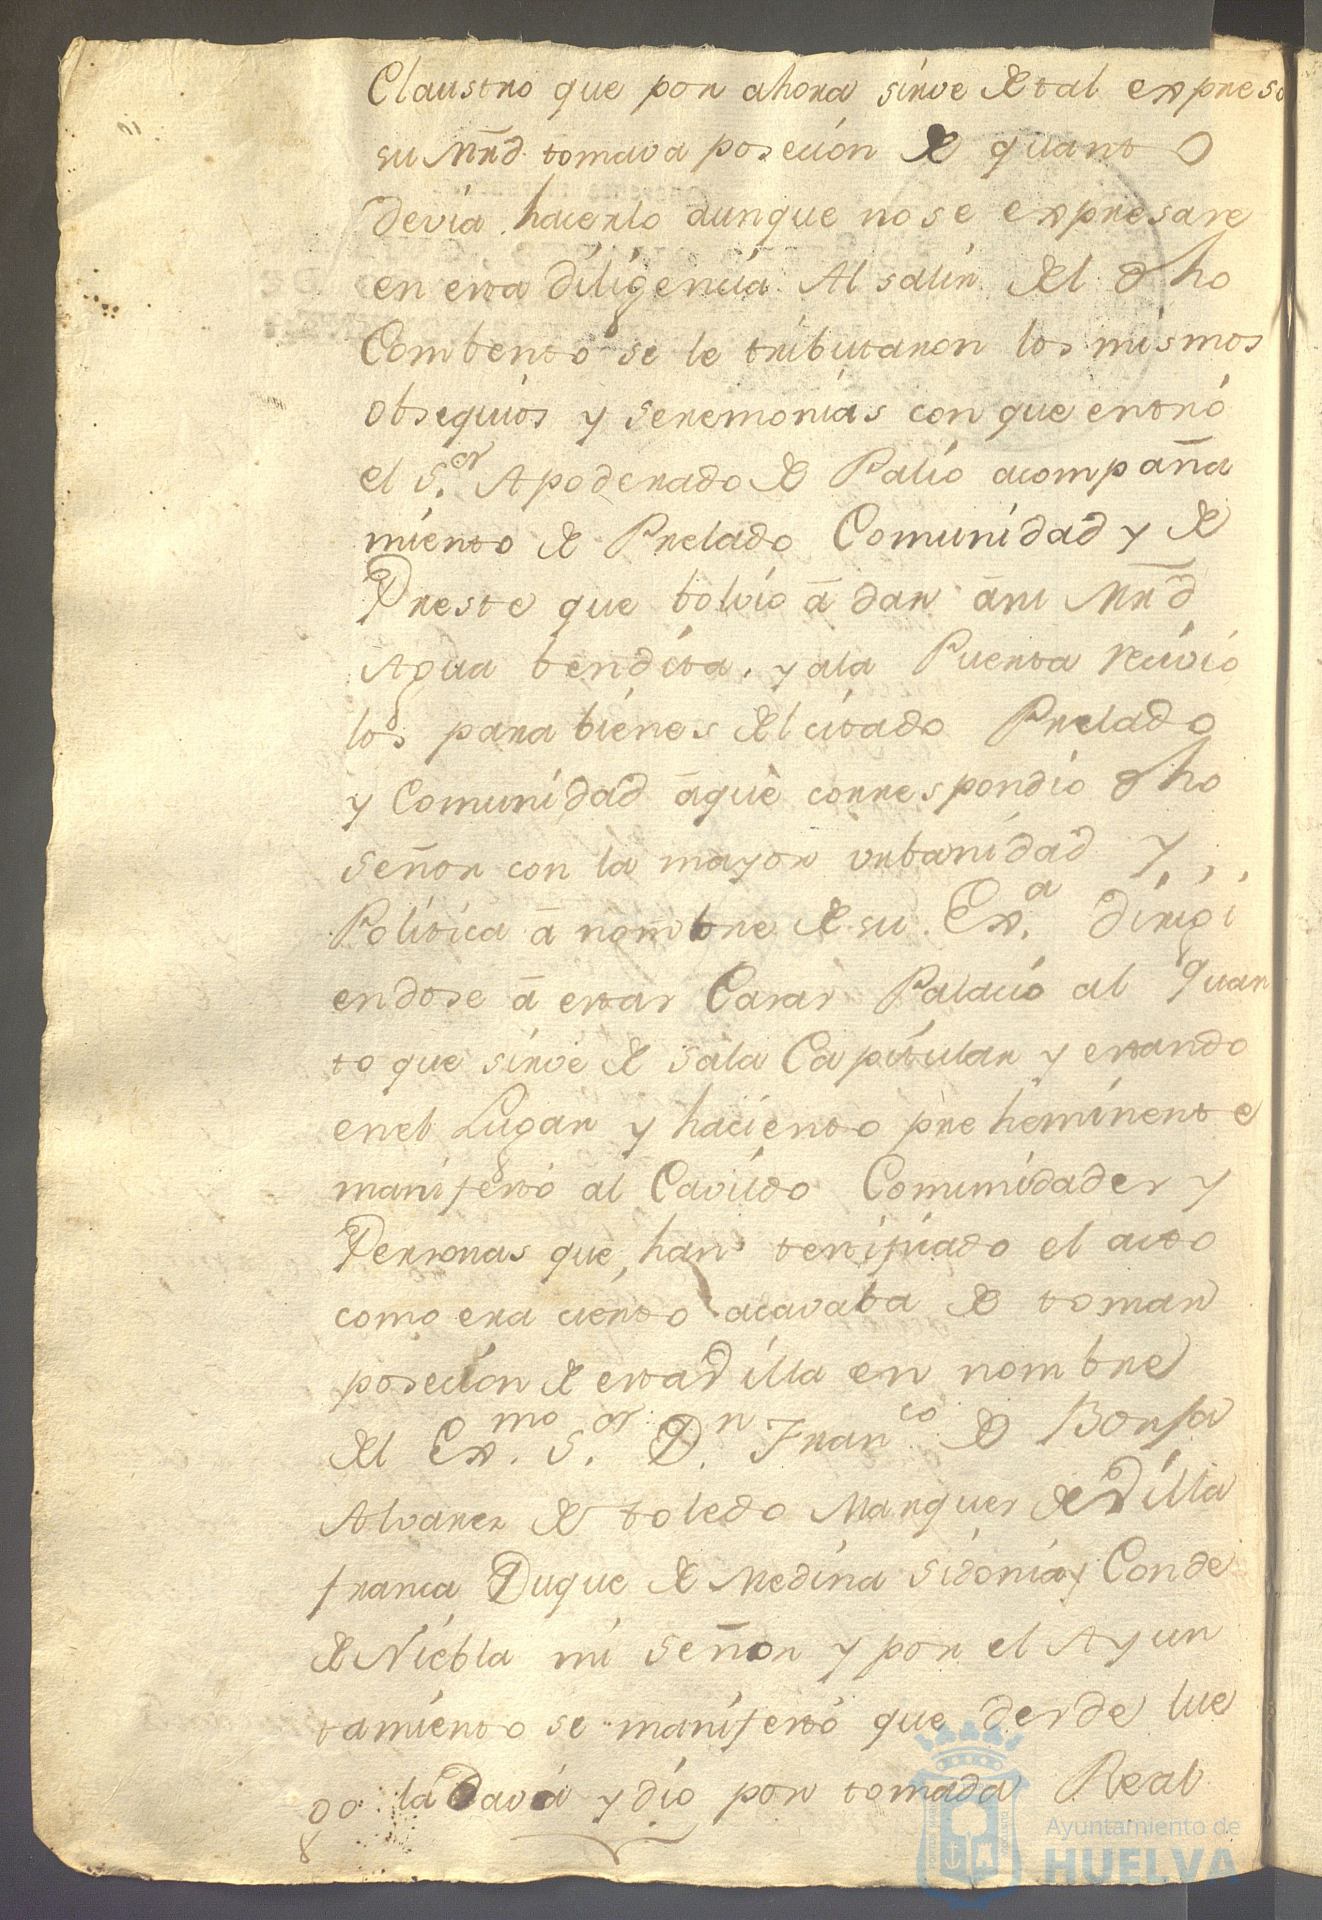 Claustro que por ahora sirve de tal expreso
su Mrd. tomava posecion de quanto
devia hacerlo aunque no se expresare
en esta diligencia Al salir del dho
Combento se le tributaron los mismos
obsequios y seremonias con que entró
el S.or Apoderado de Palio acompaña
miento de Prelado Comunidad y de
Preste que bolvio â dar âsu Mrd
Agua bendita. y ala Puerta recivio
los para bienes del citado Prelado
y Comunidad âque correspondio dho
señor con la mayor urbanidad y
Politica â nombre de su Ex.a dirigi
endose â estas Casas Palacio al quar
to que sirve de sala Capitular y estando
enel Lugar y haciento preheminente
manifestó al Cavildo Comunidades y
Personas que han testificado el acto
como era cierto acavaba de tomar
posecion de esta Villa en nombre
del Ex.mo S.or D.n Fran.co de Borja
Alvarez de toledo Marques de Villa
franca Duque de Medina Sidonia y Conde
de Niebla mi señor y por el Ayun
tamiento se manifestó que desde lue
go la dava y dio por tomada Real
Ayuntamiento de
HUELVA